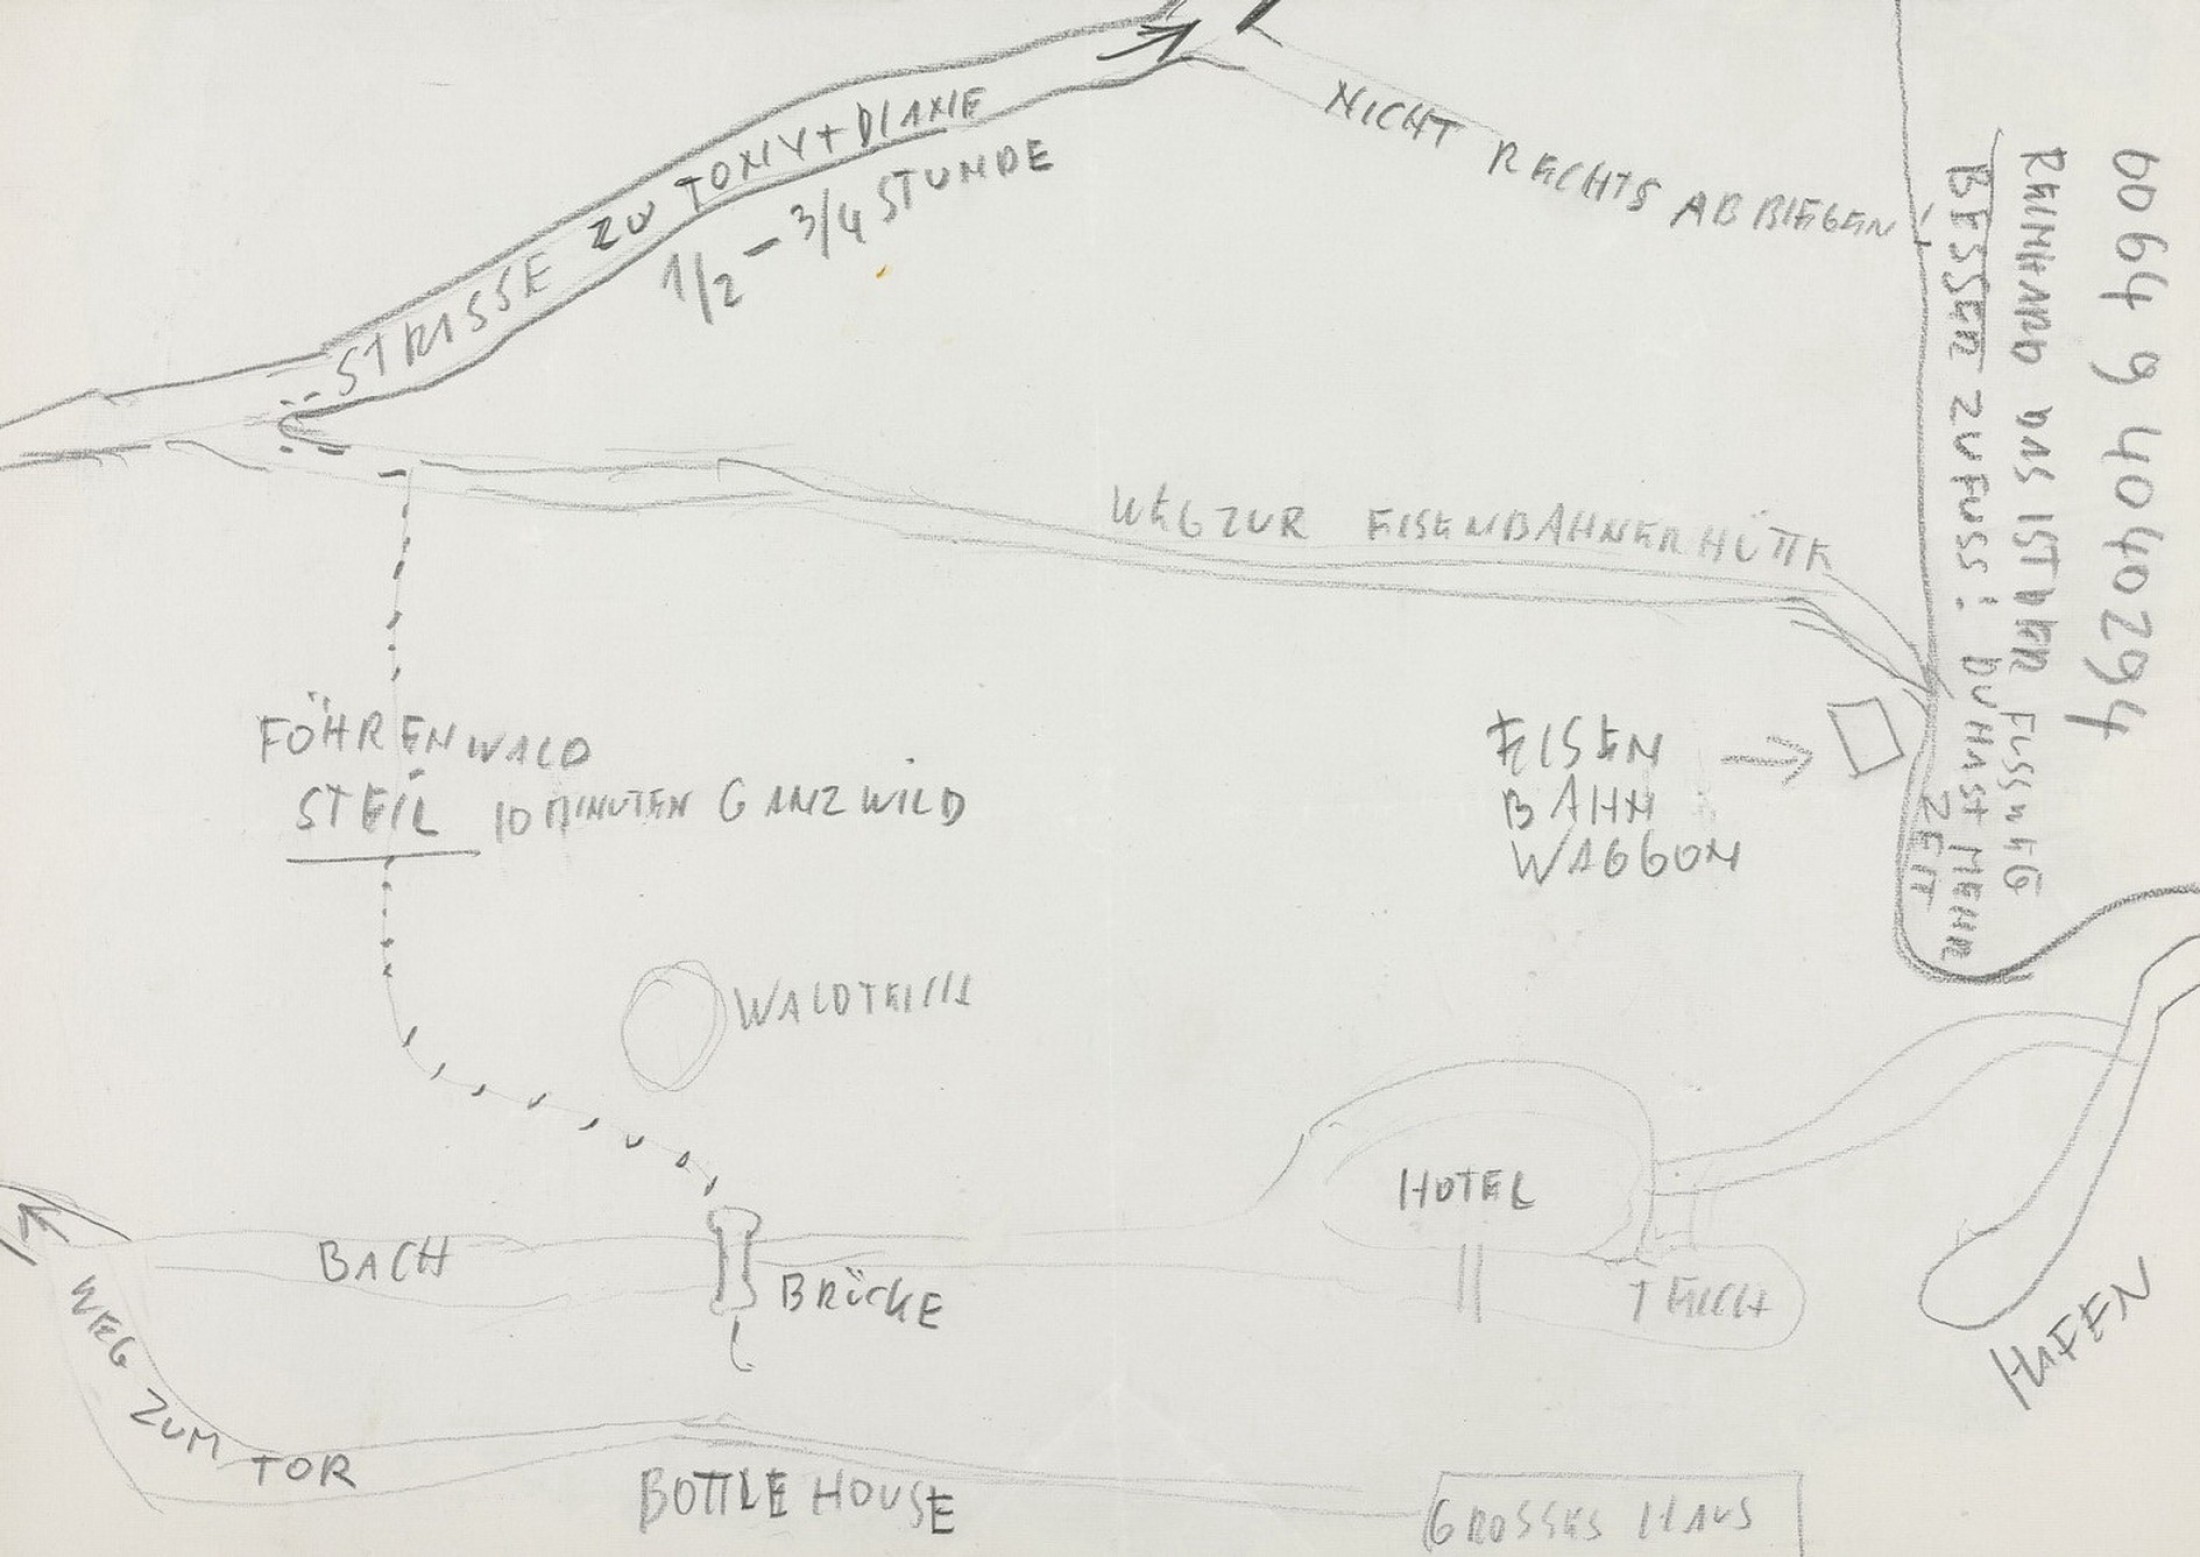 STRASSE ZU TONY + DIANE
1/2 – 3/4 STUNDE
NICHT RECHTS ABBIEGEN!
0064 9 4040294
REINHARD DAS IST DER FUSSWEG
BESSER ZUFUSS! DU HAST MEHR
ZEIT
WEG ZUR EISENBAHNERHÜTTE
FÖHRENWALD
STEIL 10 MINUTEN GANZ WILD
EISEN
BAHN
WAGGON
WALDTEICH
HOTEL
BACH
BRÜCKE
TEICH
HAFEN
WEG ZUM TOR
BOTTLE HOUSE
GROSSES HAUS